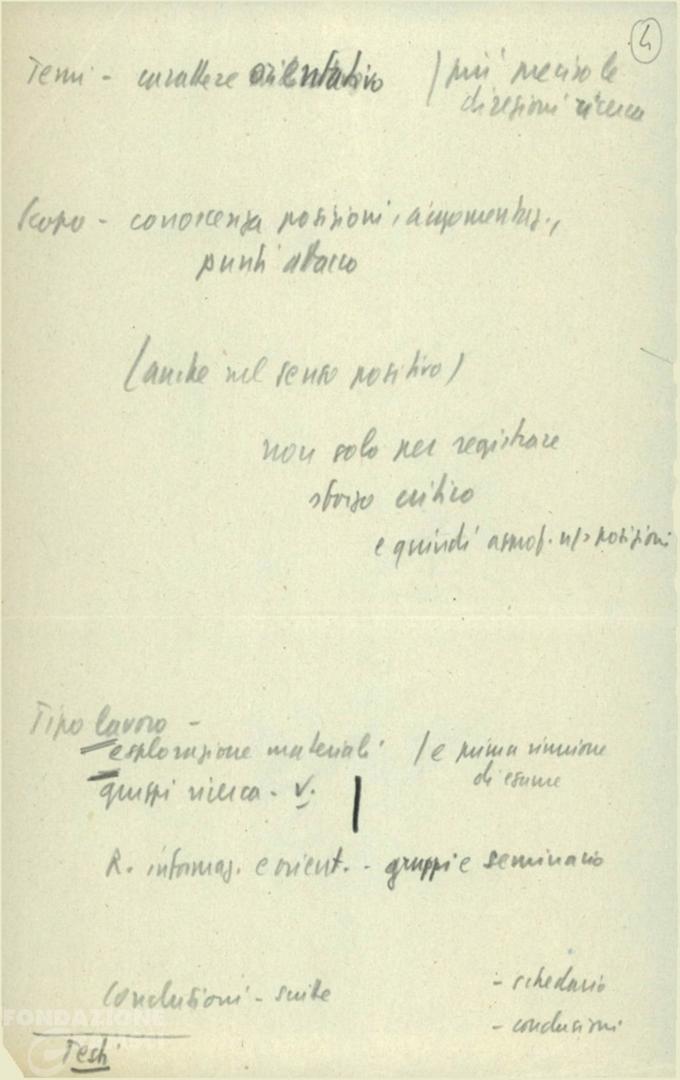 4
Temi - carattere orientativo / più precise le
direzioni ricerca
Scopo - conoscenza posizioni, argomentaz.,
punti attacco
(anche nel senso positivo)
non solo per registrare
sforzo critico
e quindi posizioni
Tipo lavoro -
esplorazione materiali / e prima riunione
di esame
gruppi ricerca - V.
R. informaz. e orient. - gruppi e seminario
Conclusioni - scritte
- schedario
- conclusioni
FONDAZIONE
Testi